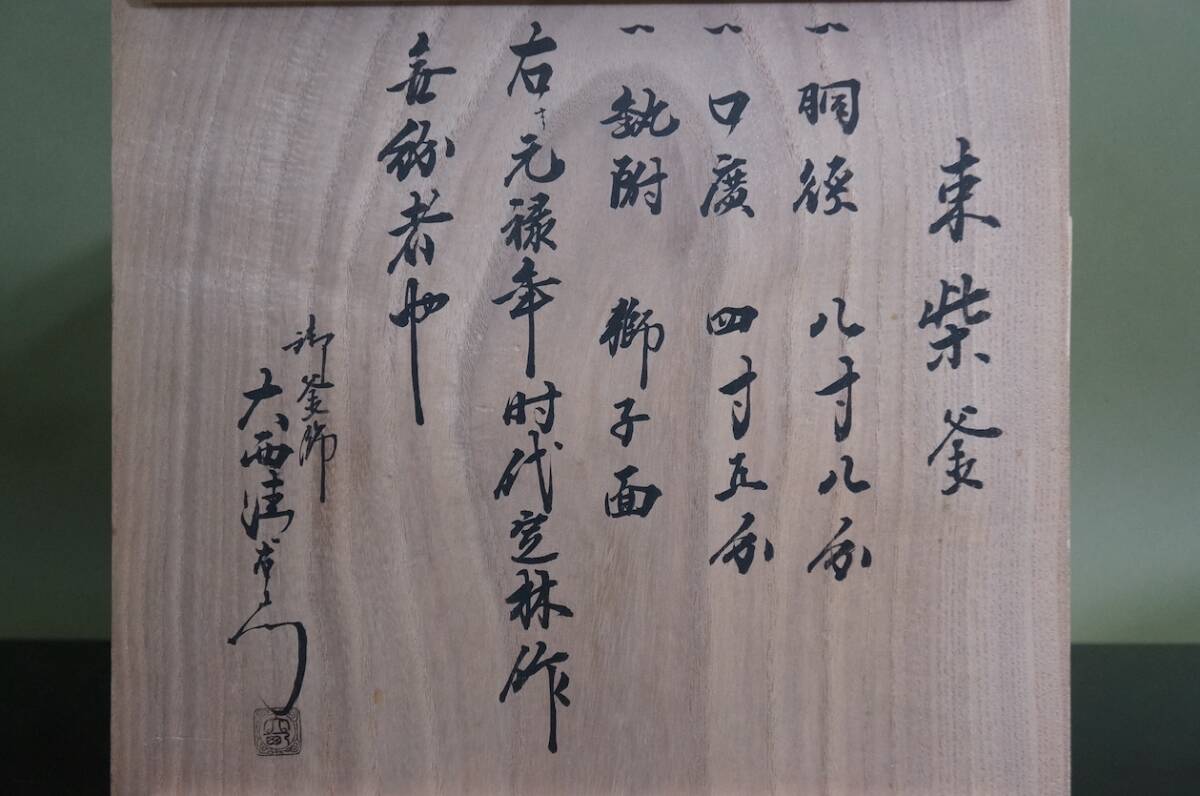 束柴釜
一 胴径 八寸八分
一 口廣 四寸五分
一 執附 獅子面
右ハ元禄年时代定林作
無紛者也
御釜師
大西清右衛門